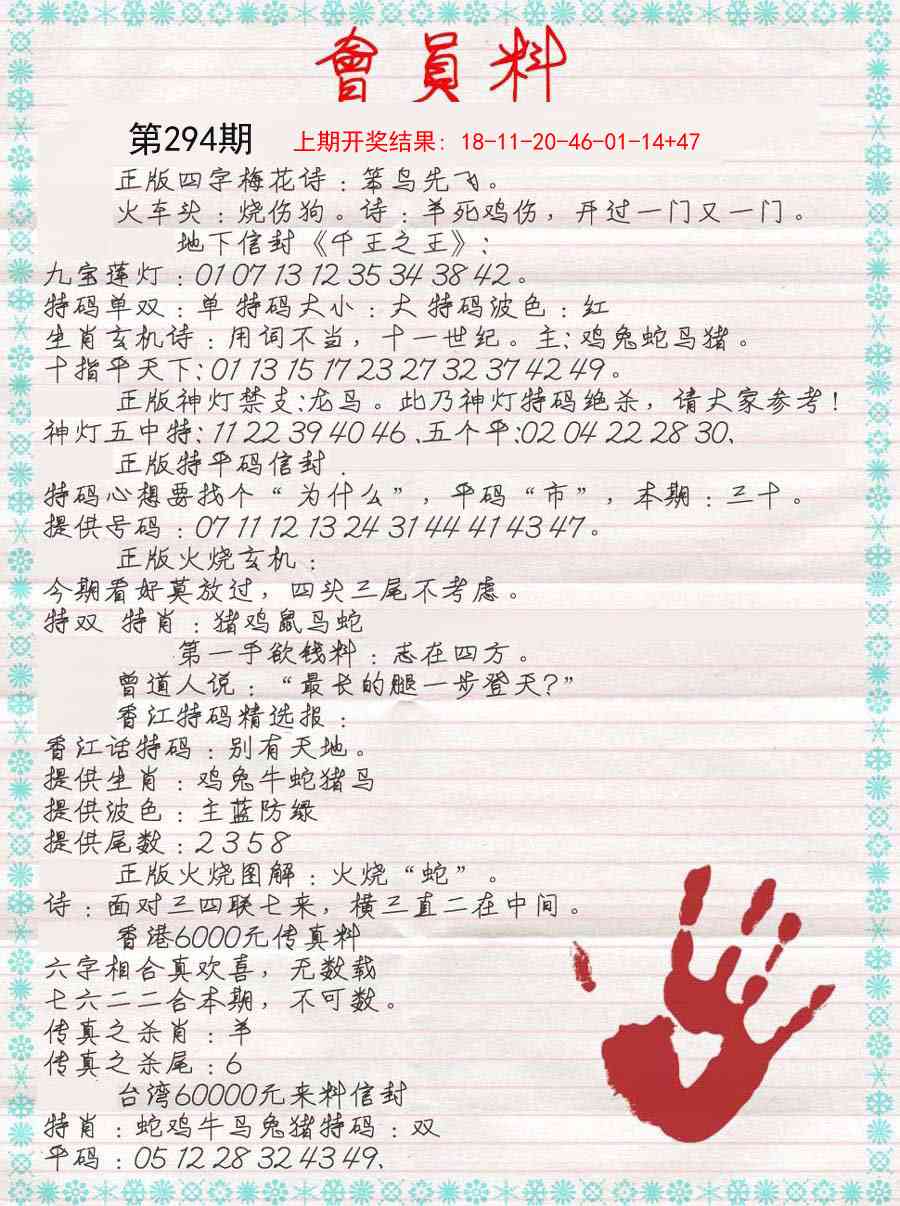 會員料
第294期 上期开奖结果：18-11-20-46-01-14+47
正版四字梅花诗：笨鸟先飞。
火车头：烧伤狗。诗：羊死鸡伤，开过一门又一门。
地下信封《千王之王》:
九宝莲灯：01 07 13 12 35 34 38 42。
特码单双：单 特码大小：大 特码波色：红
生肖玄机诗：用词不当，十一世纪。主: 鸡兔蛇马猪。
十指平天下: 01 13 15 17 23 27 32 37 42 49。
正版神灯禁支:龙马。此乃神灯特码绝杀，请大家参考！
神灯五中特: 11 22 39 40 46 、五个平:02 04 22 28 30、
正版特平码信封．
特码心想要找个“为什么”，平码“市”，本期：三十。
提供号码：07 11 12 13 24 31 44 41 43 47。
正版火烧玄机：
今期看好莫放过，四头三尾不考虑。
特双 特肖：猪鸡鼠马蛇
第一手欲钱料：志在四方。
曾道人说：“最长的腿一步登天?”
香江特码精选报：
香江话特码：别有天地。
提供生肖：鸡兔牛蛇猪马
提供波色：主蓝防绿
提供尾数：2 3 5 8
正版火烧图解：火烧“蛇”。
诗：面对三四联七来，横三直二在中间。
香港6000元传真料
六字相合真欢喜，无数载
七六二二合本期，不可数。
传真之杀肖：羊
传真之杀尾：6
台湾60000元来料信封
特肖：蛇鸡牛马兔猪特码：双
平码：05 12 28 32 43 49、